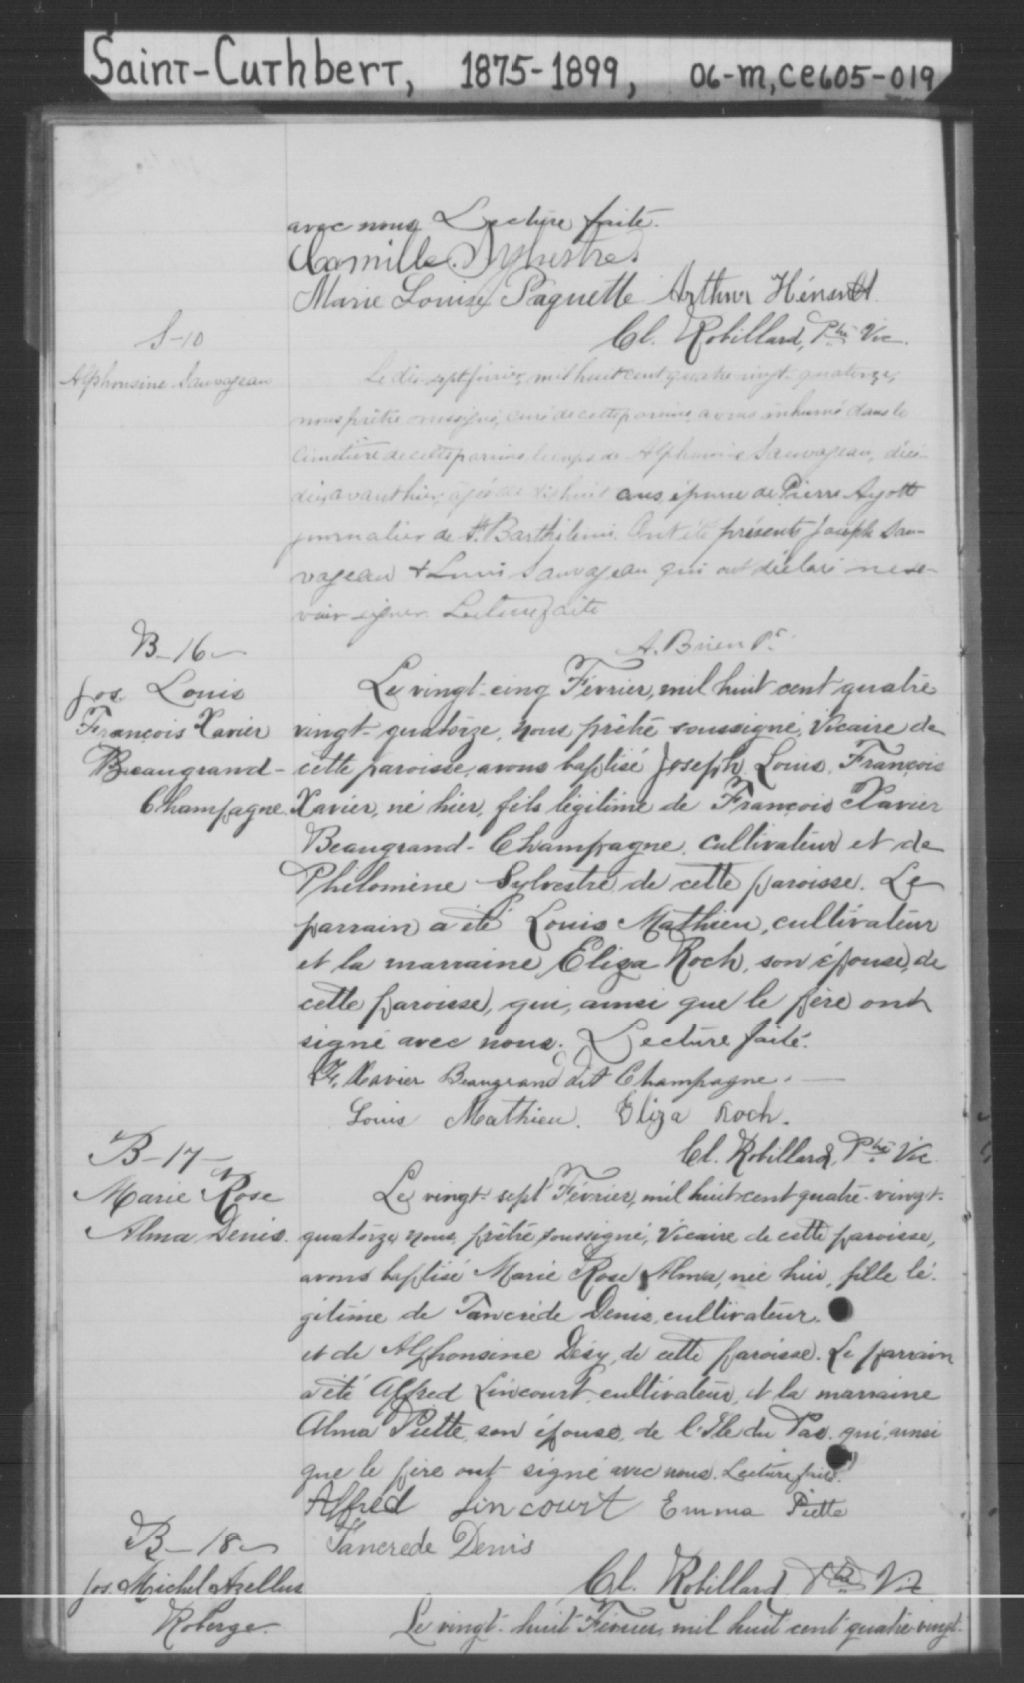 Saint-Cuthbert, 1875-1899, 06-M, CE605-019
avec nous Lecture faite.
Camille Sylvestre
Marie Louise Paquette Arthur Hénault
Cl. Robillard, Ptre Vic.
S-10
Alphonsine Sauvageau
Le dix-sept février, mil huit cent quatre vingt-quatorze,
nous prêtre soussigné, curé de cette paroisse, avons inhumé dans le
cimetière de cette paroisse le corps de Alphonsine Sauvageau, décé-
dée, avant hier, âgée de dix huit ans, épouse de Pierre Ayotte
journalier de St. Barthélemi. Ont été présents Joseph Sau-
vageau & Louis Sauvageau qui ont déclaré ne sa-
voir signer. Lecture faite
A. Brien Pr.
B-16
Jos. Louis
François Xavier
Beaugrand-
Champagne.
Le vingt-cinq Février, mil huit cent quatre
vingt-quatorze, nous prêtre soussigné, Vicaire de
cette paroisse, avons baptisé Joseph Louis, François
Xavier, né hier, fils légitime de François Xavier
Beaugrand-Champagne, cultivateur et de
Philomène Sylvestre, de cette paroisse. Le
parrain a été Louis Mathieu, cultivateur
et la marraine Eliza Roch, son épouse, de
cette paroisse, qui, ainsi que le père ont
signé avec nous. Lecture faite.
F. Xavier Beaugrand dit Champagne.
Louis Mathieu. Eliza Roch.
Cl. Robillard, Ptre Vic
B-17-
Marie Rose
Alma Denis.
Le vingt-sept Février, mil huit cent quatre-vingt-
quatorze, nous, prêtre soussigné, Vicaire de cette paroisse,
avons baptisé Marie Rose Alma, née hier, fille lé-
gitime de Tancrède Denis, cultivateur.
et de Alphonsine Désy, de cette paroisse. Le parrain
a été Alfred Lincourt, cultivateur, et la marraine
Alma Piette, son épouse, de l'Ile du Pas. qui, ainsi
que le père ont signé avec nous. Lecture faite.
Alfred Lincourt Emma Piette
Tancrede Denis
Cl. Robillard Ptre Vic
B-18
Jos. Michel Azellus
Roberge.
Le vingt-huit Février, mil huit cent quatre-vingt-